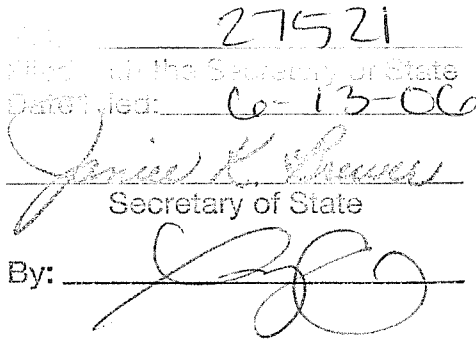 27521
Filed with the Secretary of State
Date Filed: 6-13-06
Janice K. Brewer
Secretary of State
By: